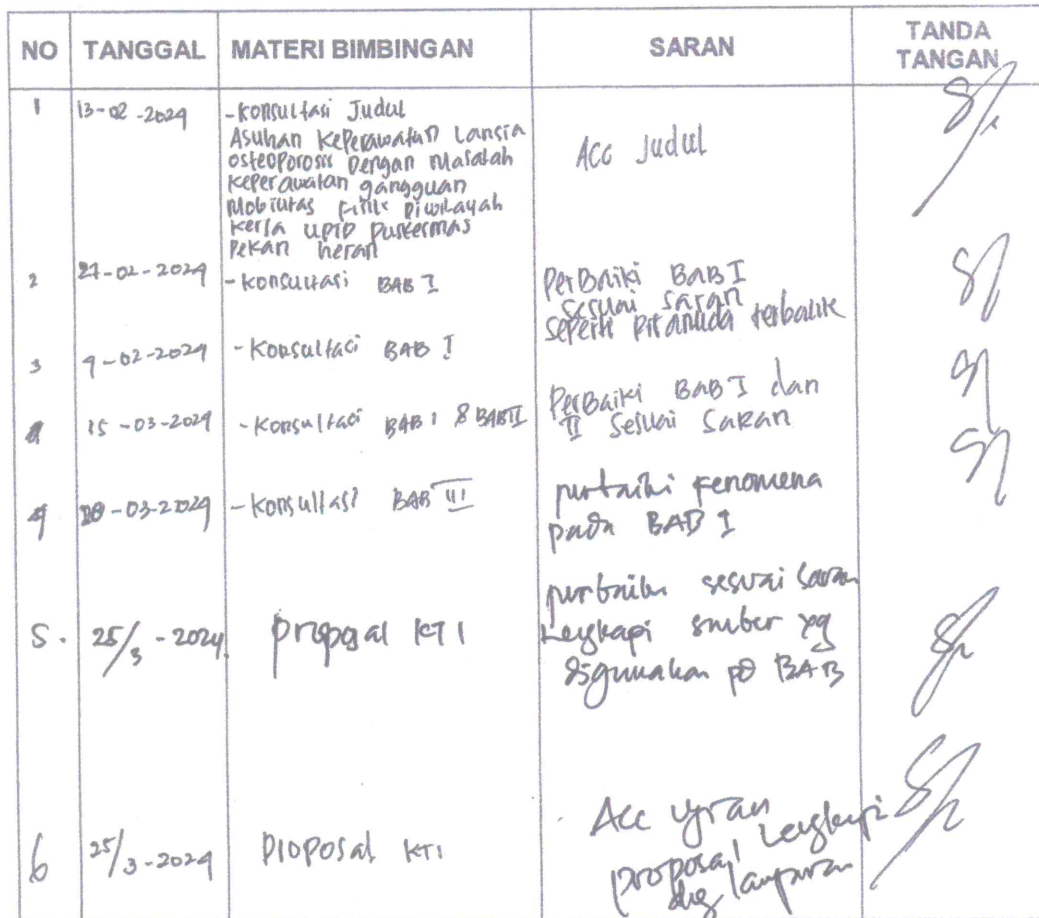 NO TANGGAL MATERI BIMBINGAN SARAN TANDA TANGAN
1 13-02-2024 -Konsultasi Judul
Asuhan Keperawatan Lansia
Osteoporosis Dengan Masalah
Keperawatan gangguan
Mobilitas Fisik Diwilayah
Kerja UPTD Puskesmas
Pekan heran
Acc Judul
2 27-02-2024 -Konsultasi BAB I
PerBaiki BAB I
sesuai saran
seperti piramida terbalik
3 9-02-2024 -Konsultasi BAB I
15-03-2024 -Konsultasi BAB I & BAB II
PerBaiki BAB I dan
II Sesuai Saran
4 -03-2024 -Konsultasi BAB III
perbaiki fenomena
pada BAB 1
5. 25/3-2024. proposal KTI
perbaiki sesuai saran
Lengkapi sumber yg
digunakan pd BAB
6 25/3-2024 proposal KTI
Acc ujian
proposal Lengkapi
dg lampiran